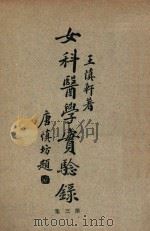 王慎軒著
女科醫學實驗錄
唐慎坊題
第三集